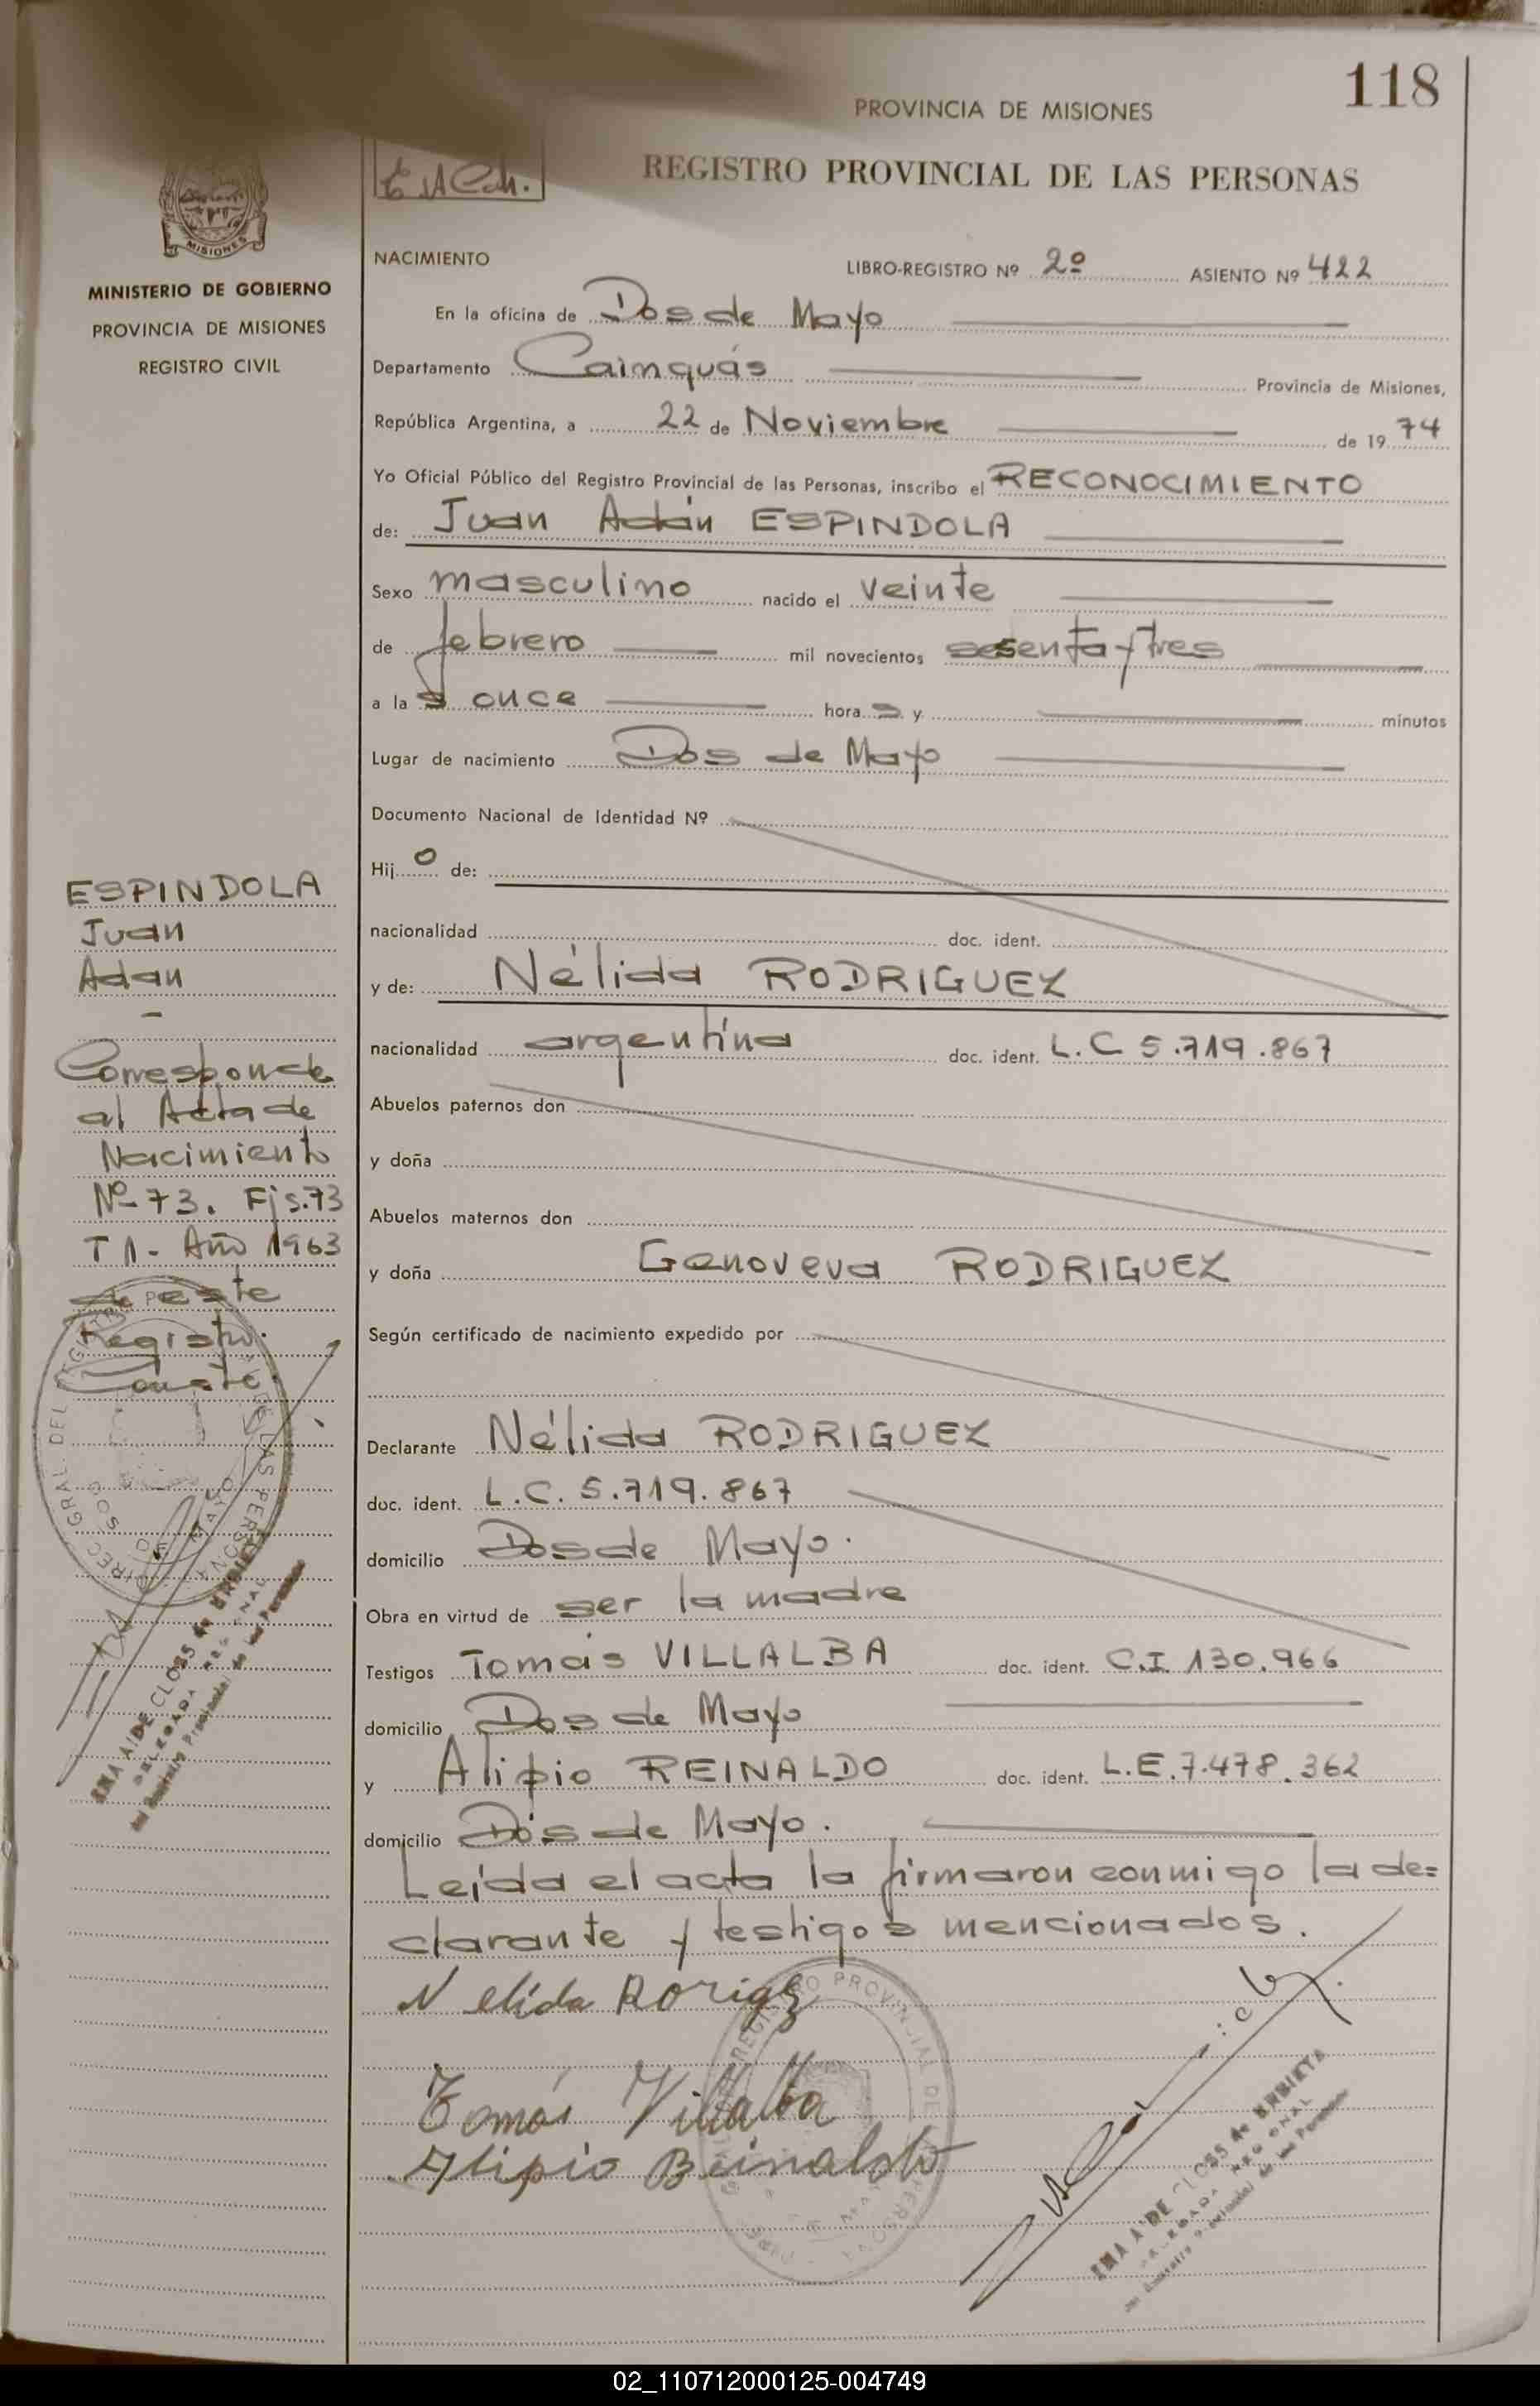 118
PROVINCIA DE MISIONES
REGISTRO PROVINCIAL DE LAS PERSONAS
MISIONES
MINISTERIO DE GOBIERNO
PROVINCIA DE MISIONES
REGISTRO CIVIL
NACIMIENTO
LIBRO-REGISTRO Nº 2º ASIENTO Nº 422
En la oficina de Dos de Mayo
Departamento Cainguás Provincia de Misiones,
República Argentina, a 22 de Noviembre de 1974
Yo Oficial Público del Registro Provincial de las Personas, inscribo el RECONOCIMIENTO
de: Juan Adán ESPINDOLA
Sexo masculino nacido el veinte
de febrero mil novecientos sesenta y tres
a las once horas y minutos
Lugar de nacimiento Dos de Mayo
Documento Nacional de Identidad Nº
Hijo de:
nacionalidad doc. ident.
y de: Nélida RODRIGUEZ
nacionalidad argentina doc. ident. L.C 5.719.867
Abuelos paternos don
y doña
Abuelos maternos don
y doña Genoveva RODRIGUEZ
Según certificado de nacimiento expedido por
Declarante Nélida RODRIGUEZ
doc. ident. L.C. 5.719.867
domicilio Dos de Mayo.
Obra en virtud de ser la madre
Testigos Tomás VILLALBA doc. ident. C.I. 130.966
domicilio Dos de Mayo
y Alipio REINALDO doc. ident. L.E. 7.478.362
domicilio Dos de Mayo.
Leída el acta la firmaron conmigo la de=
clarante y testigos mencionados.
Nelida Rorigz
Tomás Villalba
Alipio Beinaldo
ESPINDOLA
Juan
Adan
-
Corresponde
al Acta de
Nacimiento
Nº 73. Fjs. 73
T 1 - Año 1963
de este
Registro.
Conste.
02_110712000125-004749